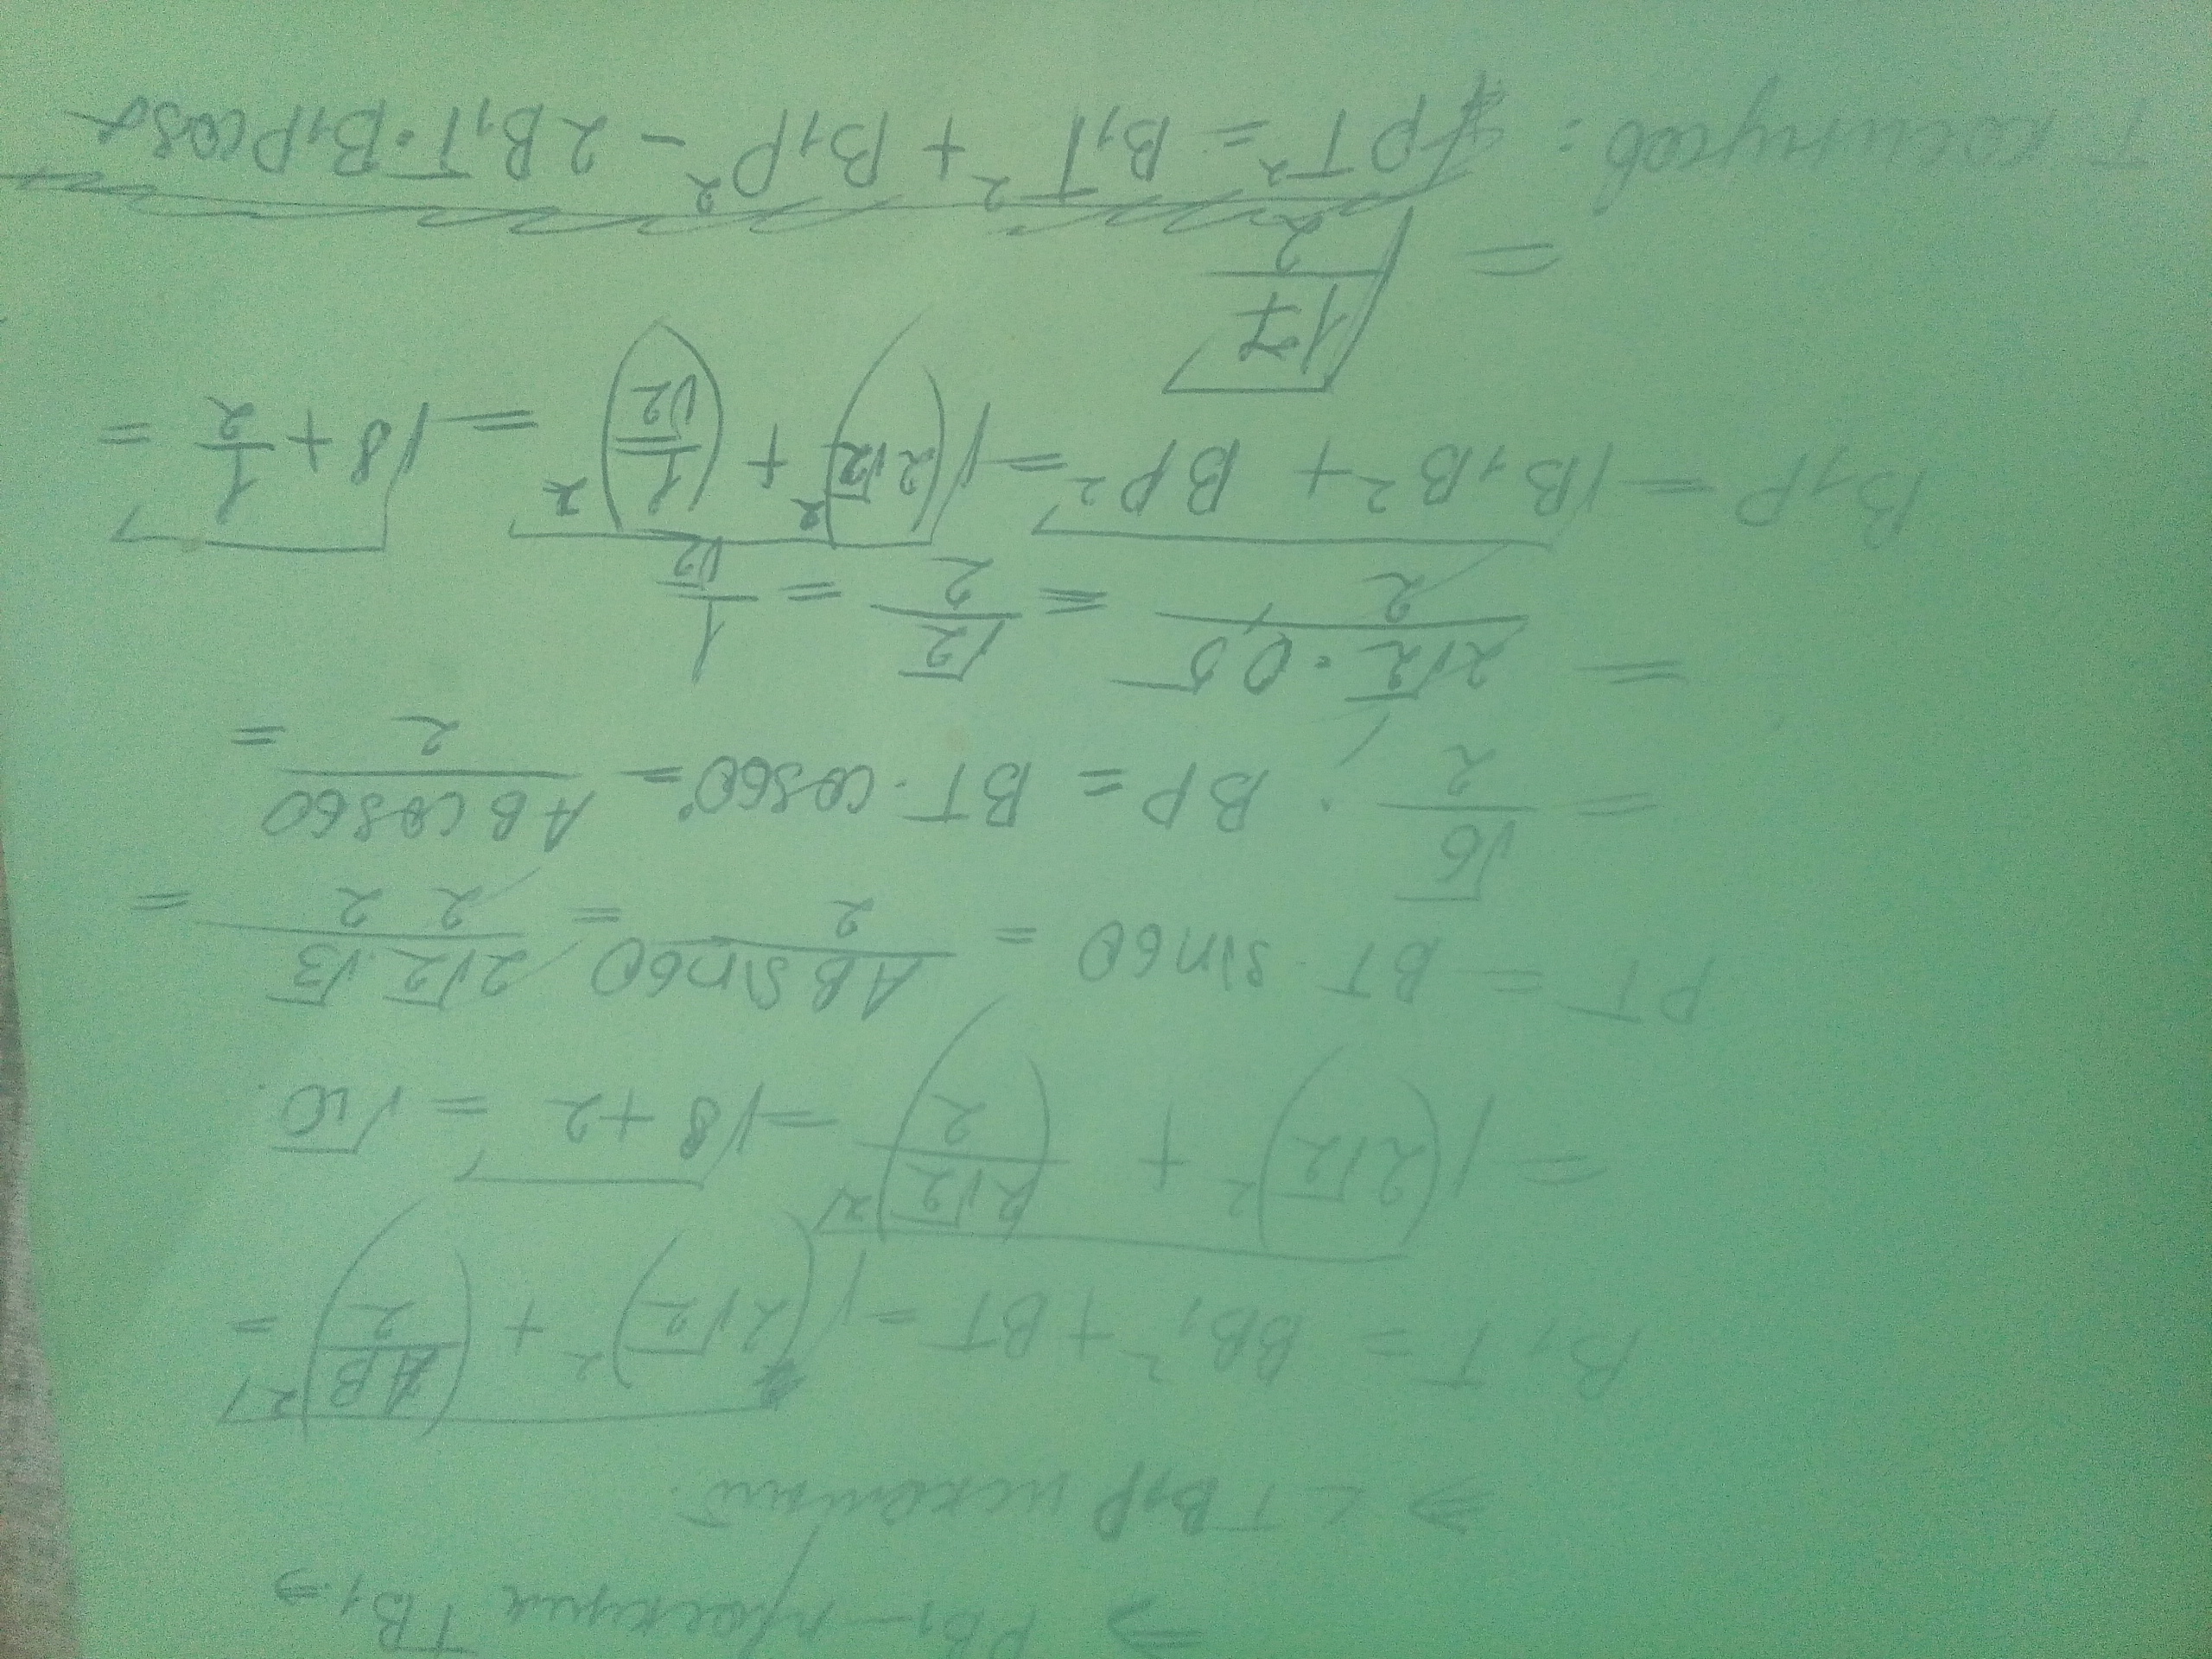 ⇒ PB₁ - проекция TB₁ ⇒
⇒ ∠TB₁P искомый.
B₁T = BB₁² + BT = √((2√2)² + (AB/2)²) =
= √((2√2)² + (2√2/2)²) = √(8+2) = √10.
PT = BT · sin60 = ABsin60/2 = 2√2·√3/2·2 =
= √6/2 ; BP = BT · cos60° = ABcos60/2 =
= 2√2·0,5/2 = √2/2 = 1/√2
B₁P = √(B₁B² + BP²) = √((2√2)² + (1/√2)²) = √(8+1/2) =
= √(17/2)
Т косинусов: PT² = B₁T² + B₁P² - 2B₁T·B₁Pcosα